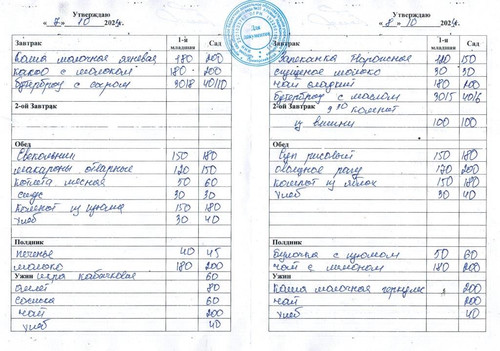 Утверждаю
« 7 » 10 2024г.
1-я младшая Сад
Завтрак
Каша молочная ячневая 180 200
Какао с молоком 180 200
Бутерброд с сыром 30/8 40/10
2-ой Завтрак
Обед
Свекольник 150 180
Макароны отварные 120 150
Котлета мясная 50 60
Соус 30 30
Компот из изюма 150 180
Хлеб 30 40
Полдник
печенье 40 45
молоко 180 200
Ужин икра кабачковая 60
омлет 80
сосиска 60
чай 200
хлеб 40
Для документов
Утверждаю
« 8 » 10 2024г.
1-я младшая Сад
Завтрак
Запеканка творожная 120 150
Сгущеное молоко 30 30
Чай сладкий 180 200
Бутерброд с маслом 30/5 40/6
2-ой Завтрак
компот
из вишни 100 100
Обед
Суп рисовый 150 180
Овощное рагу 170 200
Компот из яблок 150 180
Хлеб 30 40
Полдник
Булочка с изюмом 50 60
Чай с лимоном 180 200
Ужин
Каша молочная геркулес 200
Чай 200
Хлеб 40